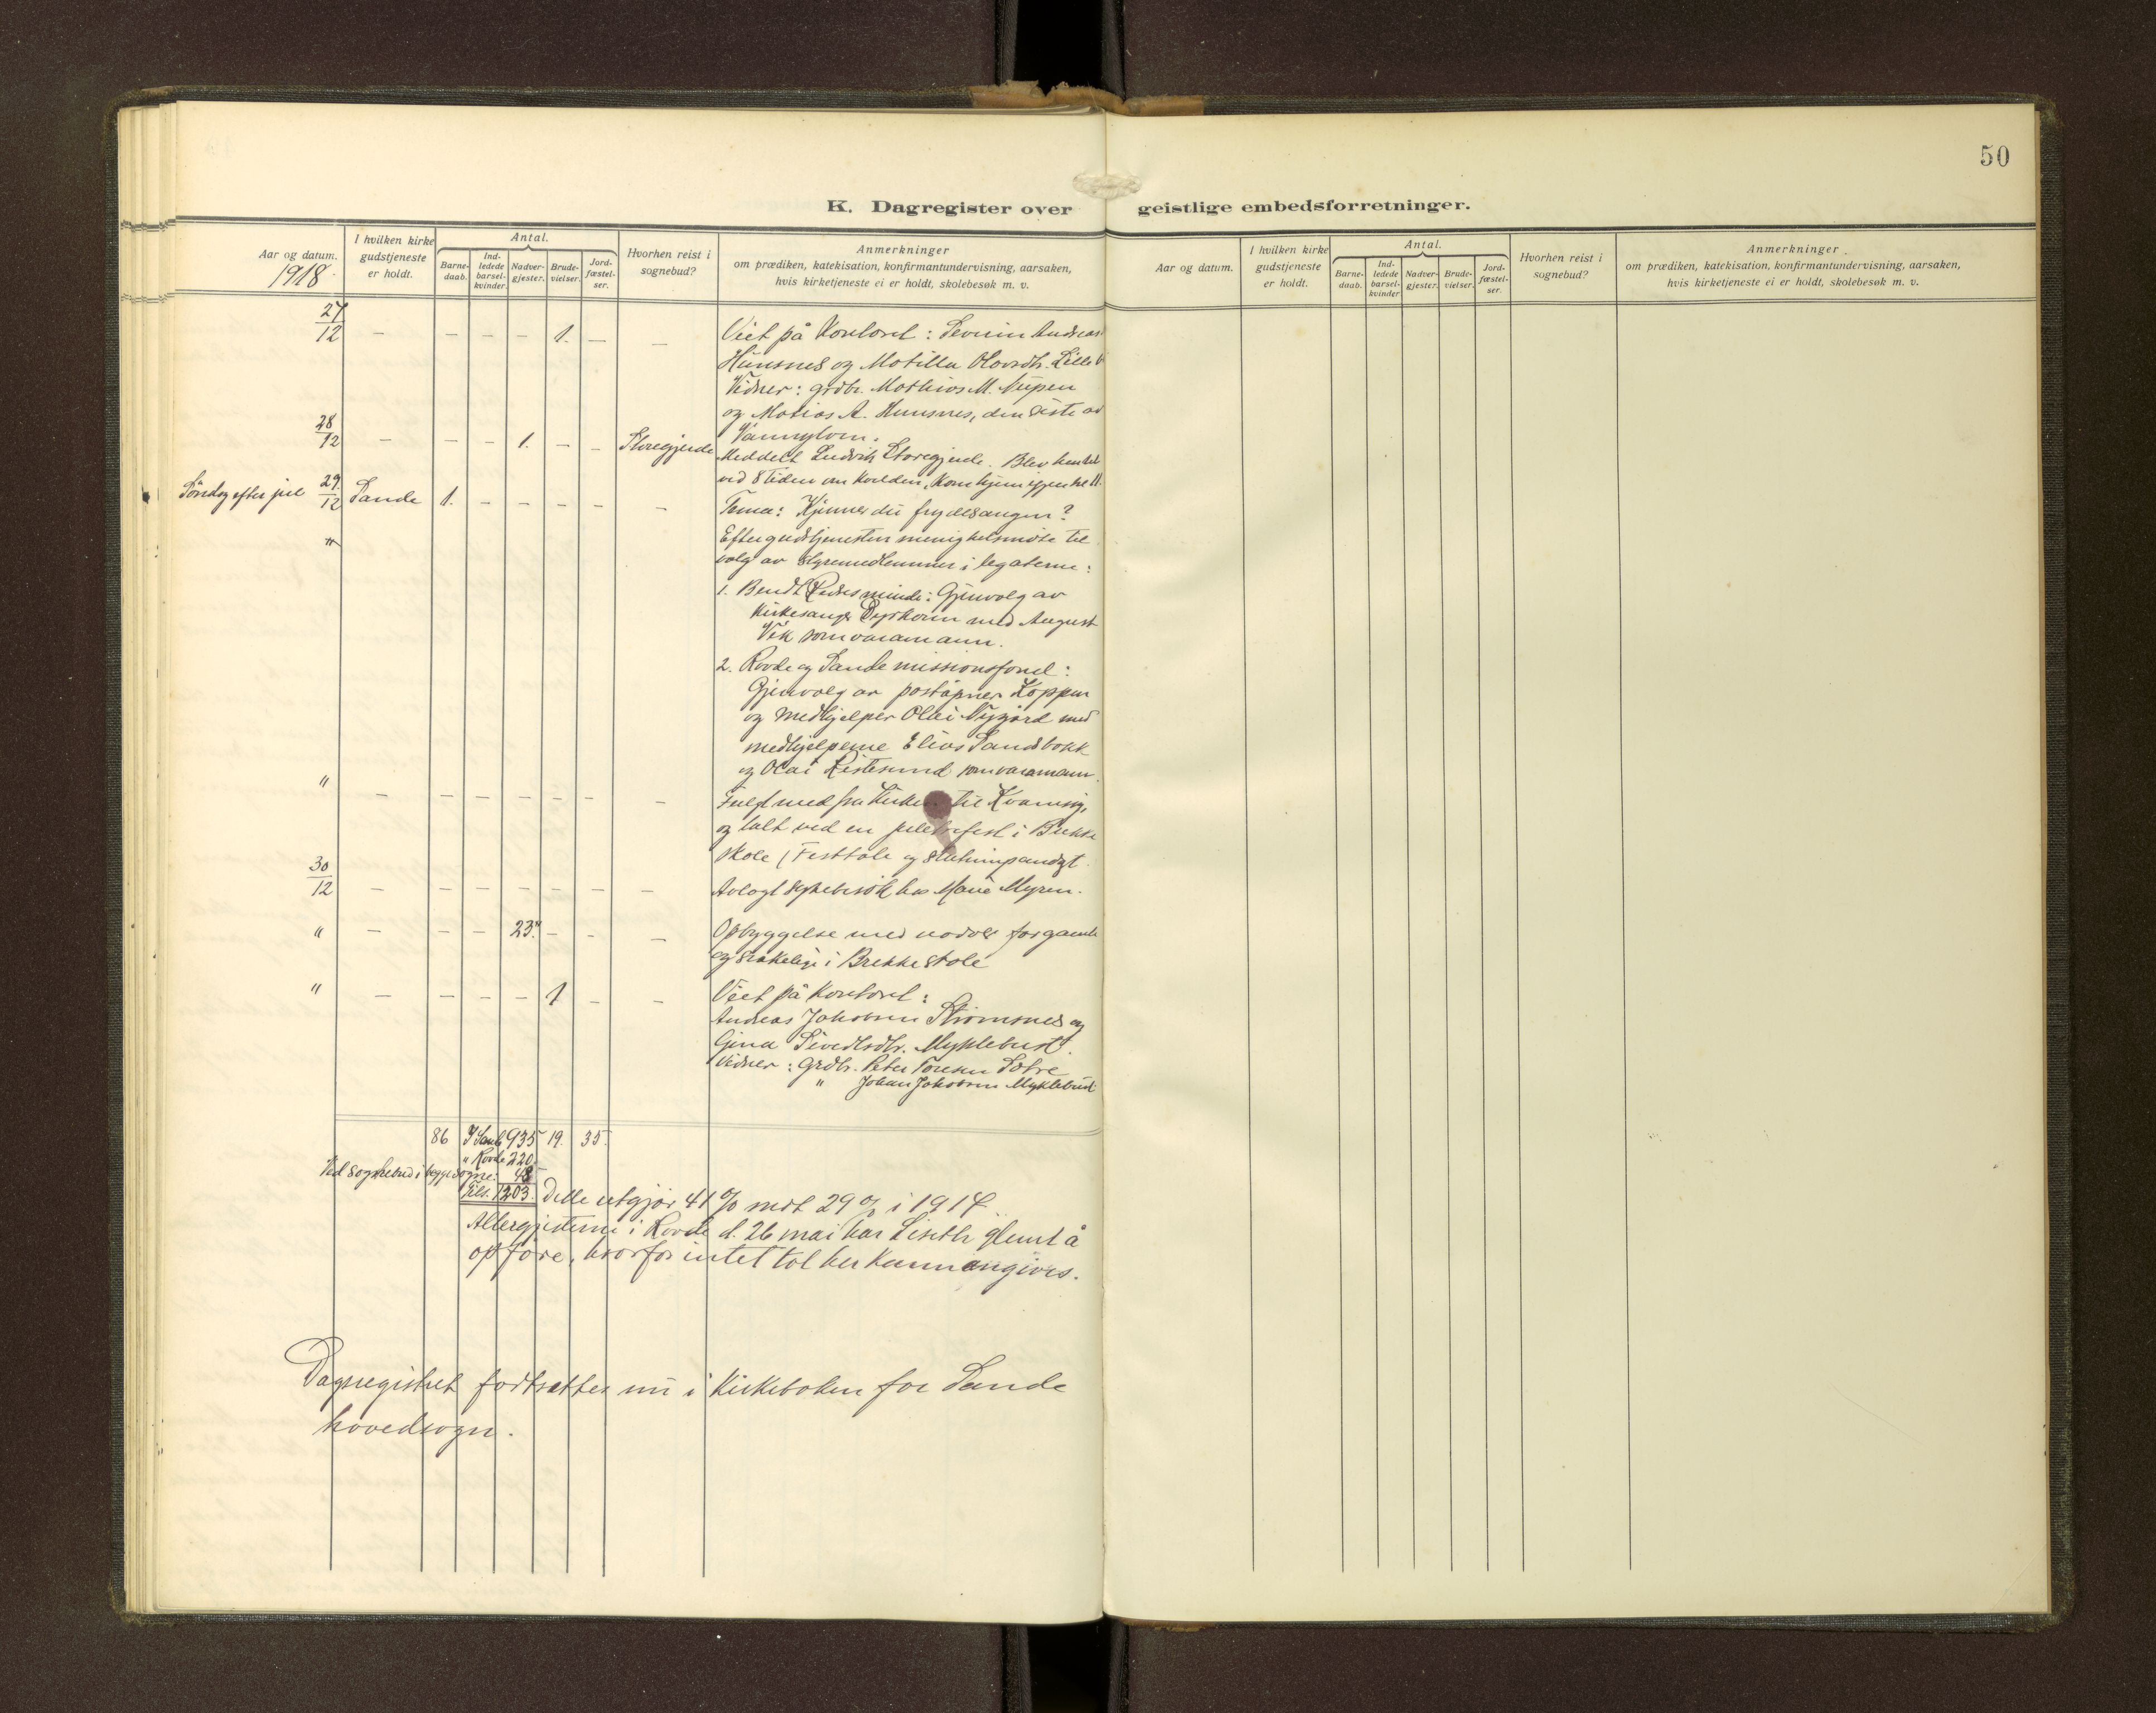 50
K. Dagregister over geistlige embedsforretninger.
Aar og datum.
1918.
I hvilken kirke gudstjeneste er holdt.
Antal.
Barne-daab.
Ind-ledede barsel-kvinder.
Nadver-gjester.
Brude-vielser.
Jord-fæstel-ser.
Hvorhen reist i sognebud?
Anmerkninger
om prædiken, katekisation, konfirmantundervisning, aarsaken,
hvis kirketjeneste ei er holdt, skolebesøk m. v.
Aar og datum.
I hvilken kirke gudstjeneste er holdt.
Antal.
Barne-daab.
Ind-ledede barsel-kvinder
Nadver-gjester.
Brude-vielser.
Jord-fæstel-ser.
Hvorhen reist i sognebud?
Anmerkninger
om prædiken, katekisation, konfirmantundervisning, aarsaken,
hvis kirketjeneste ei er holdt, skolebesøk m. v.
27/12 – – – – 1. – – Viet på kontoret: Severin Andreas
Hunsnes og Matilla Olavsdtr. Lille
Vidner: grdbr. Mathias M. Nupen
og Matias A. Hunsnes, den siste av
Vannylven.
28/12 – – – 1. – – Storegjerde Meddelt Ludvik Storegjerde. Blev hentet
ved 8 tiden om kvelden, kom hjem igjen kl 11.
Söndag efter jul 29/12 Sande 1. – – – – – Tema: Kjenner du frydesangen?
" Efter gudstjenesten menighetsmöte til
valg av styremedlemmer i legaterne:
1. Bendt Pedersminde: Gjenvalg av
kirkesanger Dyrkorn med August
Vik som varamann.
2. Rovde og Sande missionsfond:
Gjenvalg av poståpner Koppen
og medhjelper Olai Nygård med
medhjelperne Elias Sandsbakk
og Olai Ristesund som varamann.
" – – – – – – – Fulgt med fra kirken til Kvamsøy,
og talt ved en juletrefest i Brekke
skole (Festtale og slutningsandagt.
30/12 – – – – – – – Avlagt sykebesök hos Marie Myren.
" – – – 23. – – – Opbyggelse med nadver for gamle
og svakelige i Brekke skole
" – – – – 1 – – Viet på kontoret:
Andreas Jakobsen Strömsnes og
Gina Sivertsdtr. Myklebust.
Vidner: Grdbr. Peter Toresen Sætre
" Johan Jakobsen Myklebust
86 I Sande 935 19. 35.
" Rovde 220.
Ved sognebud i begge sogne: 48
Tils. 1203. Dette utgjör 41% mot 29% i 1917.
Altergjesterne i Rovde d. 26 mai har Liseth glemt å
opföre, hvorfor intet tal her kann angives.
Dagregistret fortsættes nu i kirkeboken for Sande
hovedsogn.